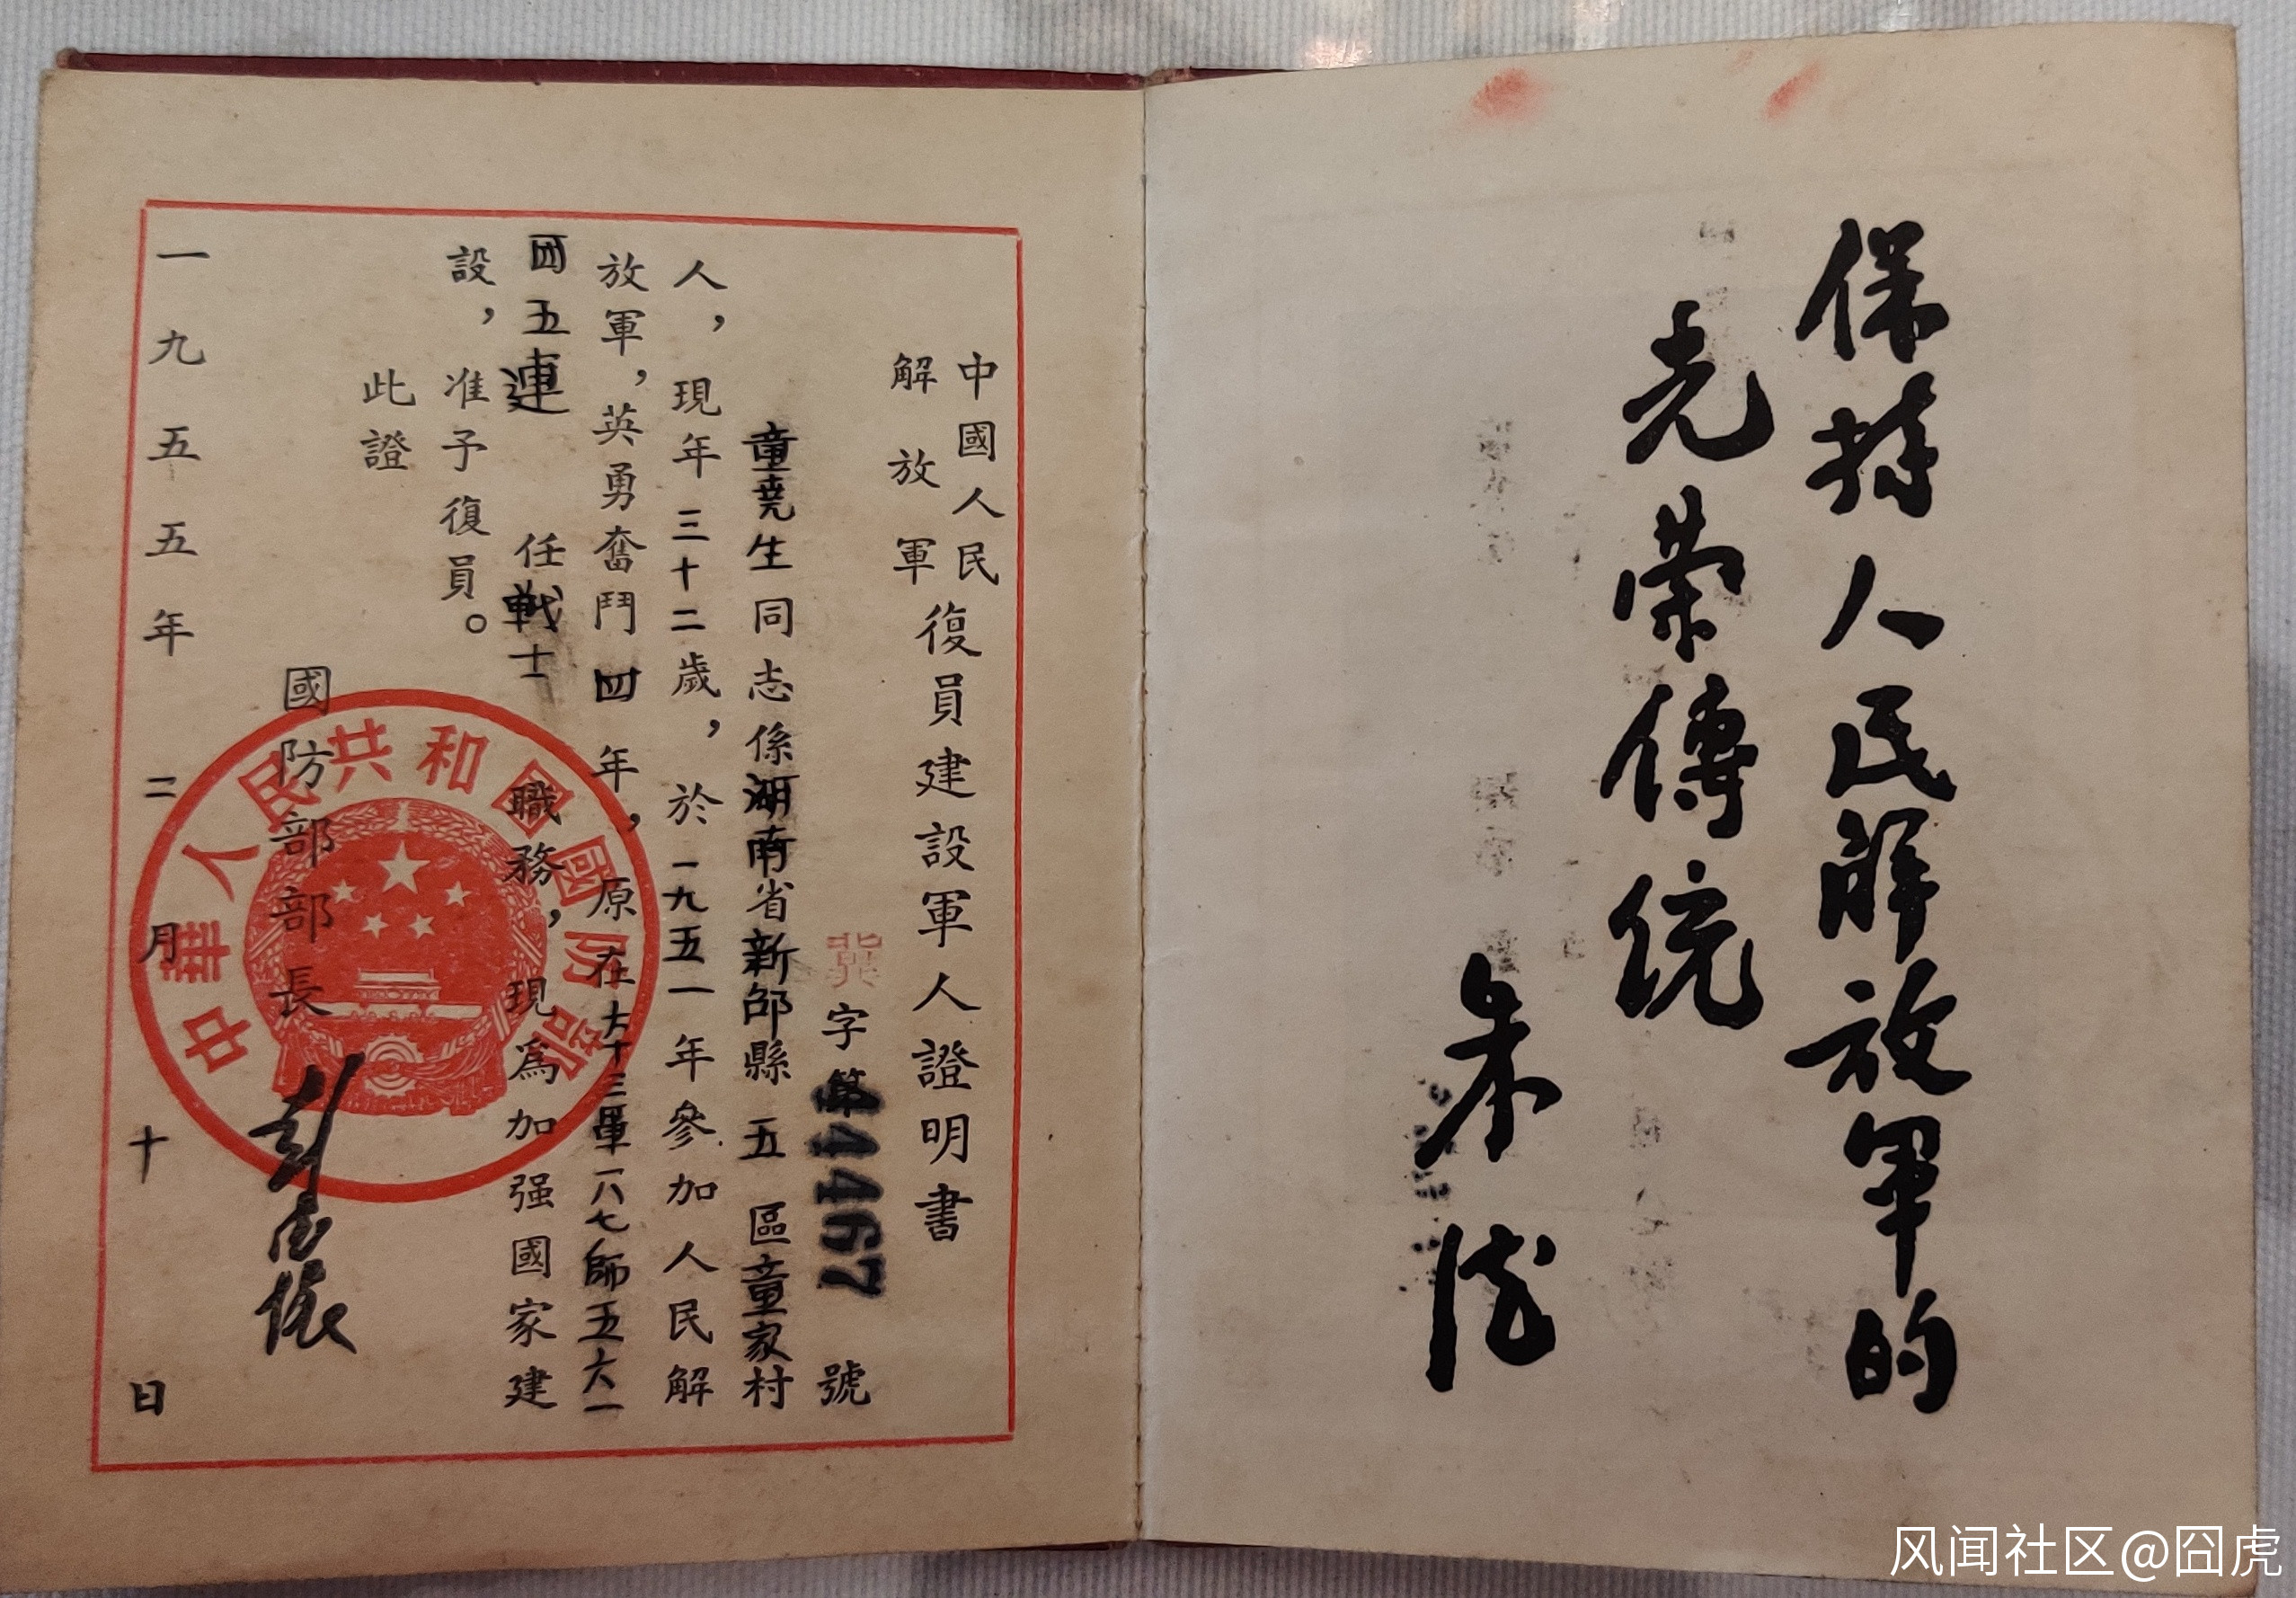 保持人民解放軍的
光荣傳統
朱德
中國人民
解放軍
復員建設軍人證明書
巽字第4467號
童堯生同志係湖南省新邵縣五區童家村
人，現年三十二歲，於一九五一年參加人民解
放軍，英勇奮鬥四年，原在六十三軍一八七師五六一
团五連任戰士職務，現爲加强國家建
設，准予復員。
此證
國防部部長
彭德懷
一九五五年二月十日
中華人民共和國國防部
风闻社区@囧虎